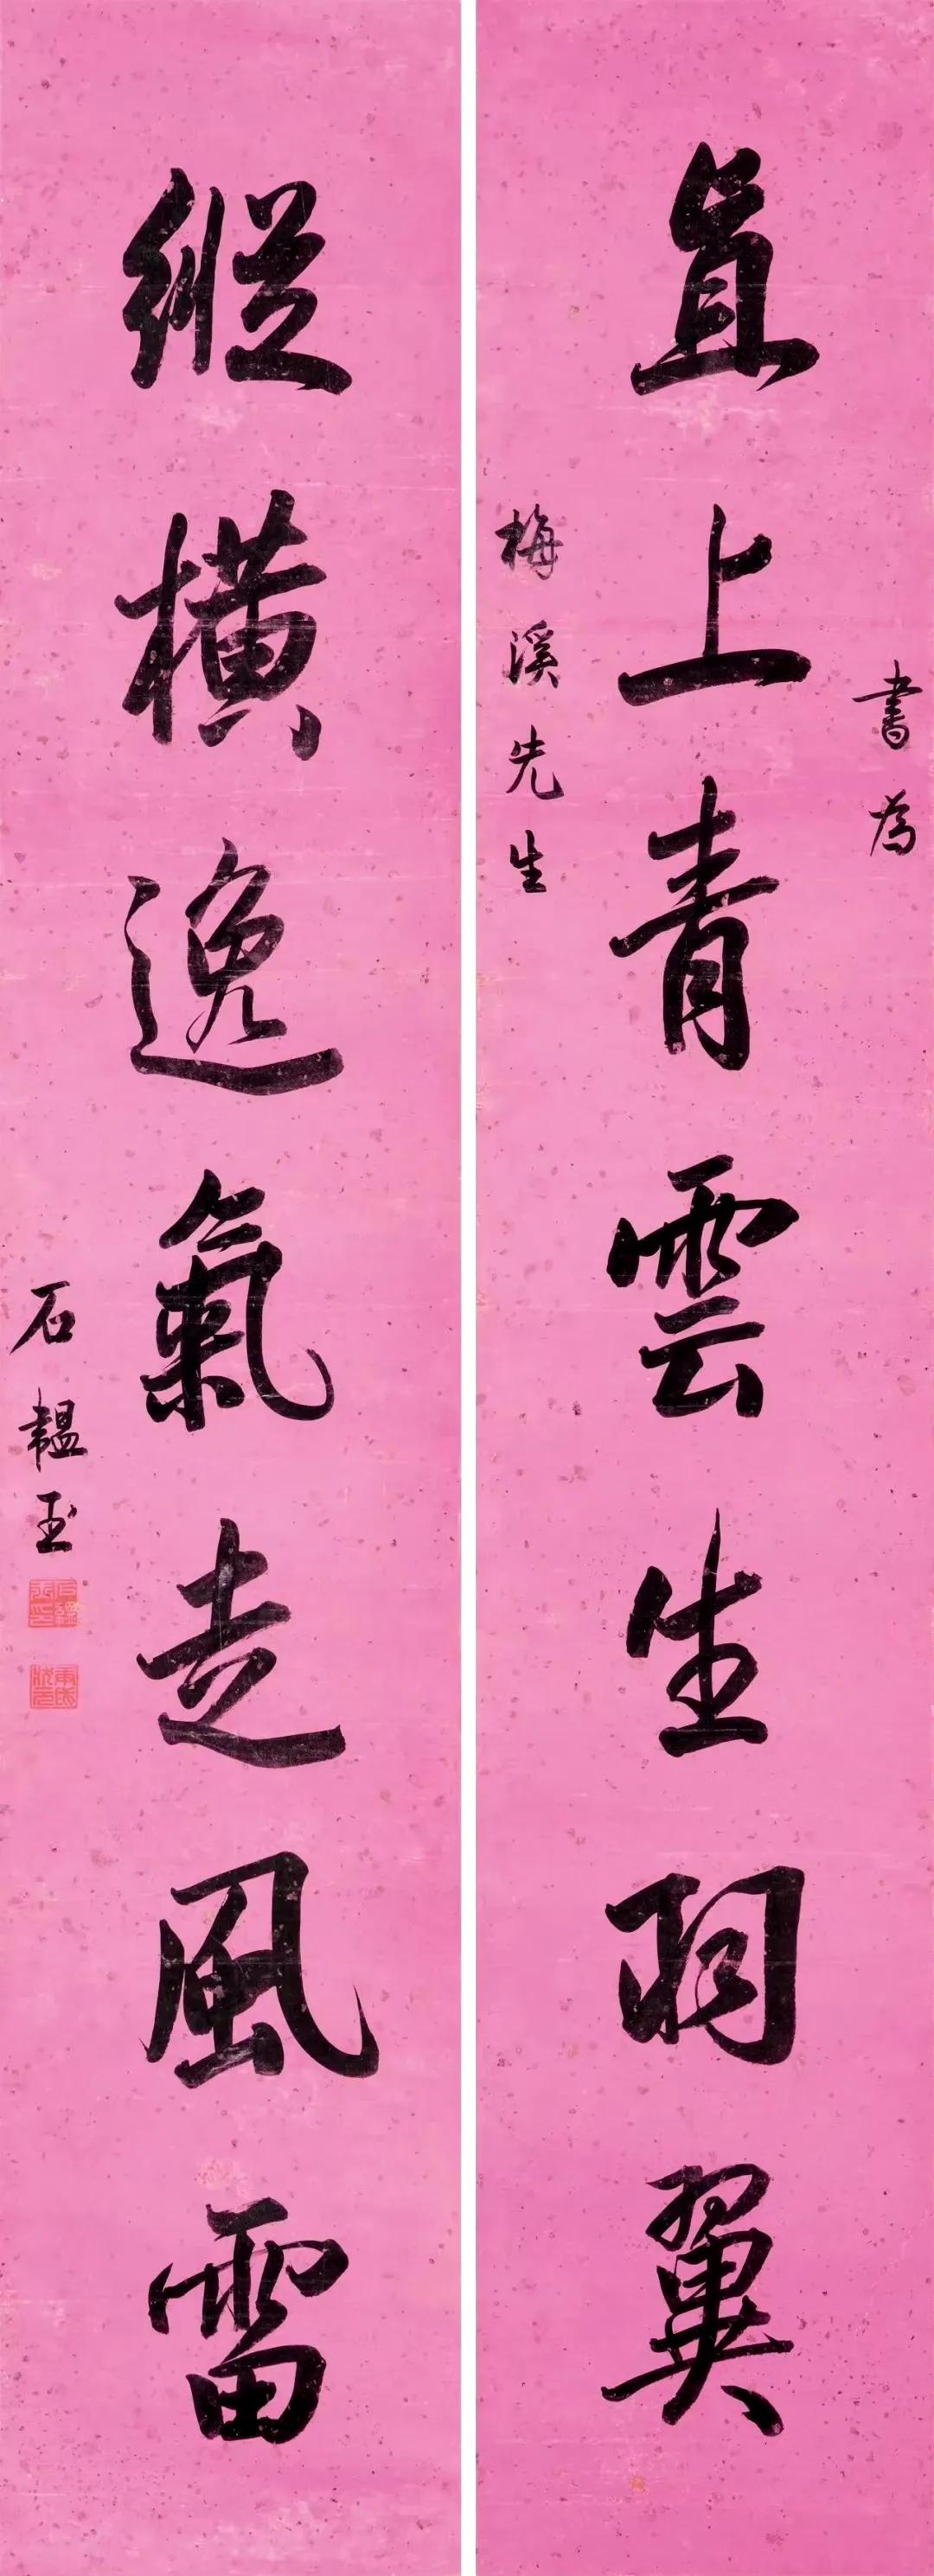 書為
直上青雲生羽翼
梅溪先生
縱橫逸氣走風雷
石韞玉